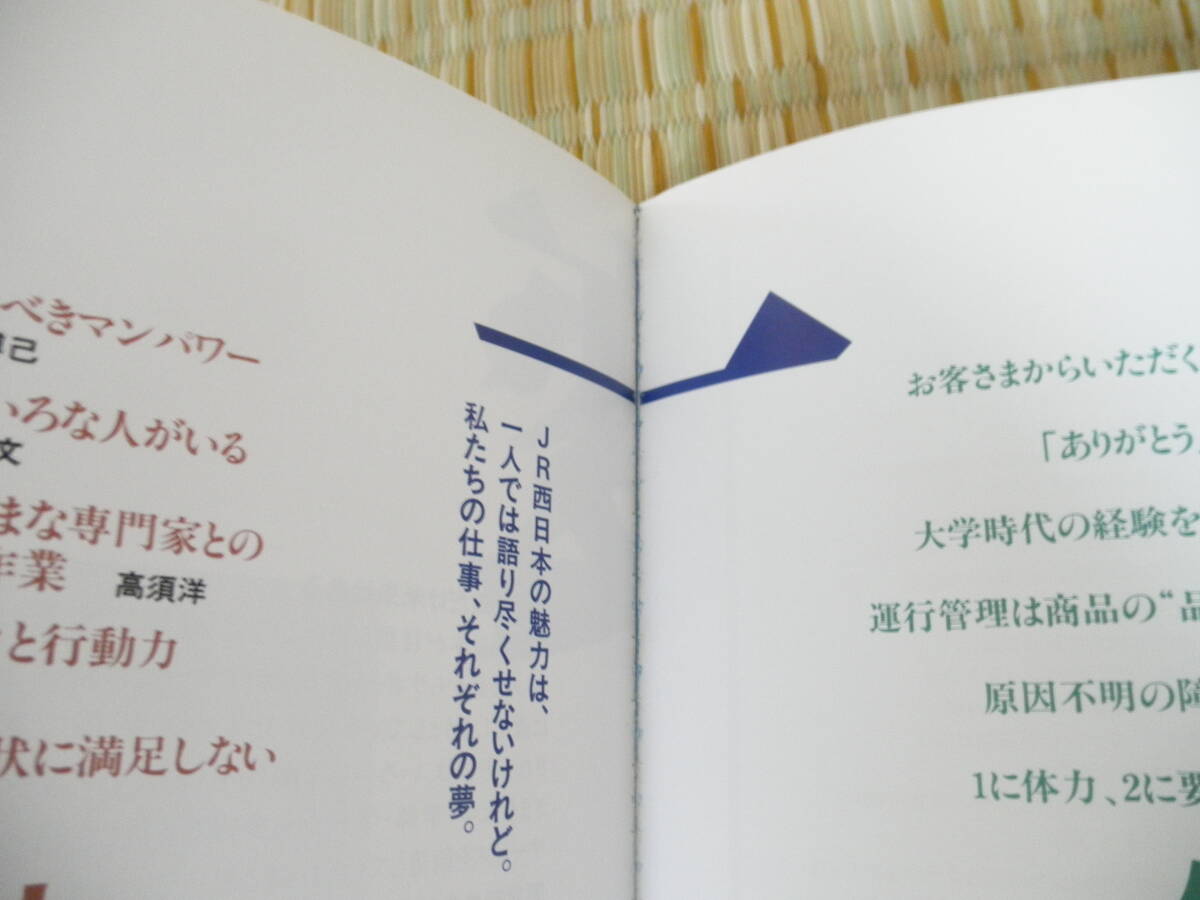 べきマンパワー
己
いろな人がいる
文
まな専門家との
作業 高須洋
と行動力
状に満足しない
JR西日本の魅力は、
一人では語り尽くせないけれど。
私たちの仕事、それぞれの夢。
お客さまからいただく
「ありがとう」
大学時代の経験を
運行管理は商品の“品
原因不明の障
1に体力、2に要